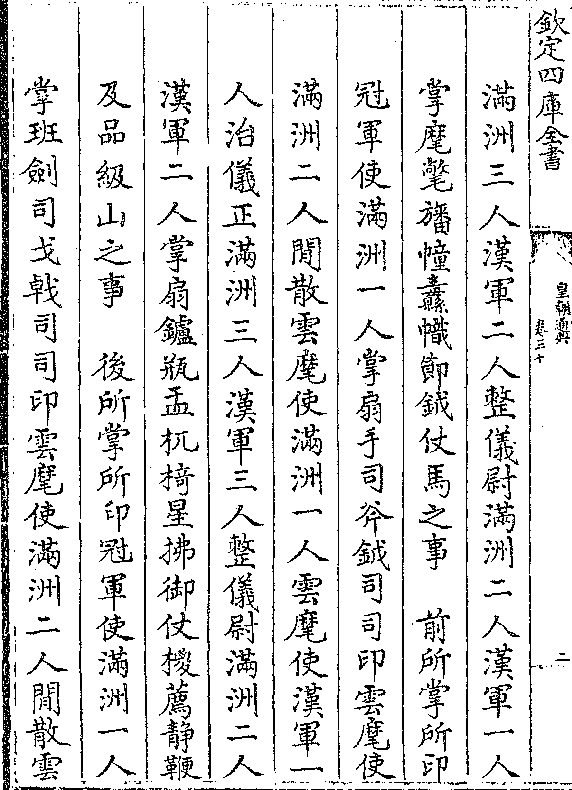 欽定四庫全書
皇朝通典
卷三十
二
滿洲三人漢軍二人整儀尉滿洲二人漢軍一人
掌麾氅旛幢纛幟節鉞仗馬之事　前所掌所印
冠軍使滿洲一人掌扇手司斧鉞司司印雲麾使
滿洲二人閒散雲麾使滿洲一人雲麾使漢軍一
人治儀正滿洲三人漢軍三人整儀尉滿洲二人
漢軍二人掌扇鑪瓶盂杌椅星拂御仗椶薦静鞭
及品級山之事　後所掌所印冠軍使滿洲一人
掌班劍司戈戟司司印雲麾使滿洲二人閒散雲